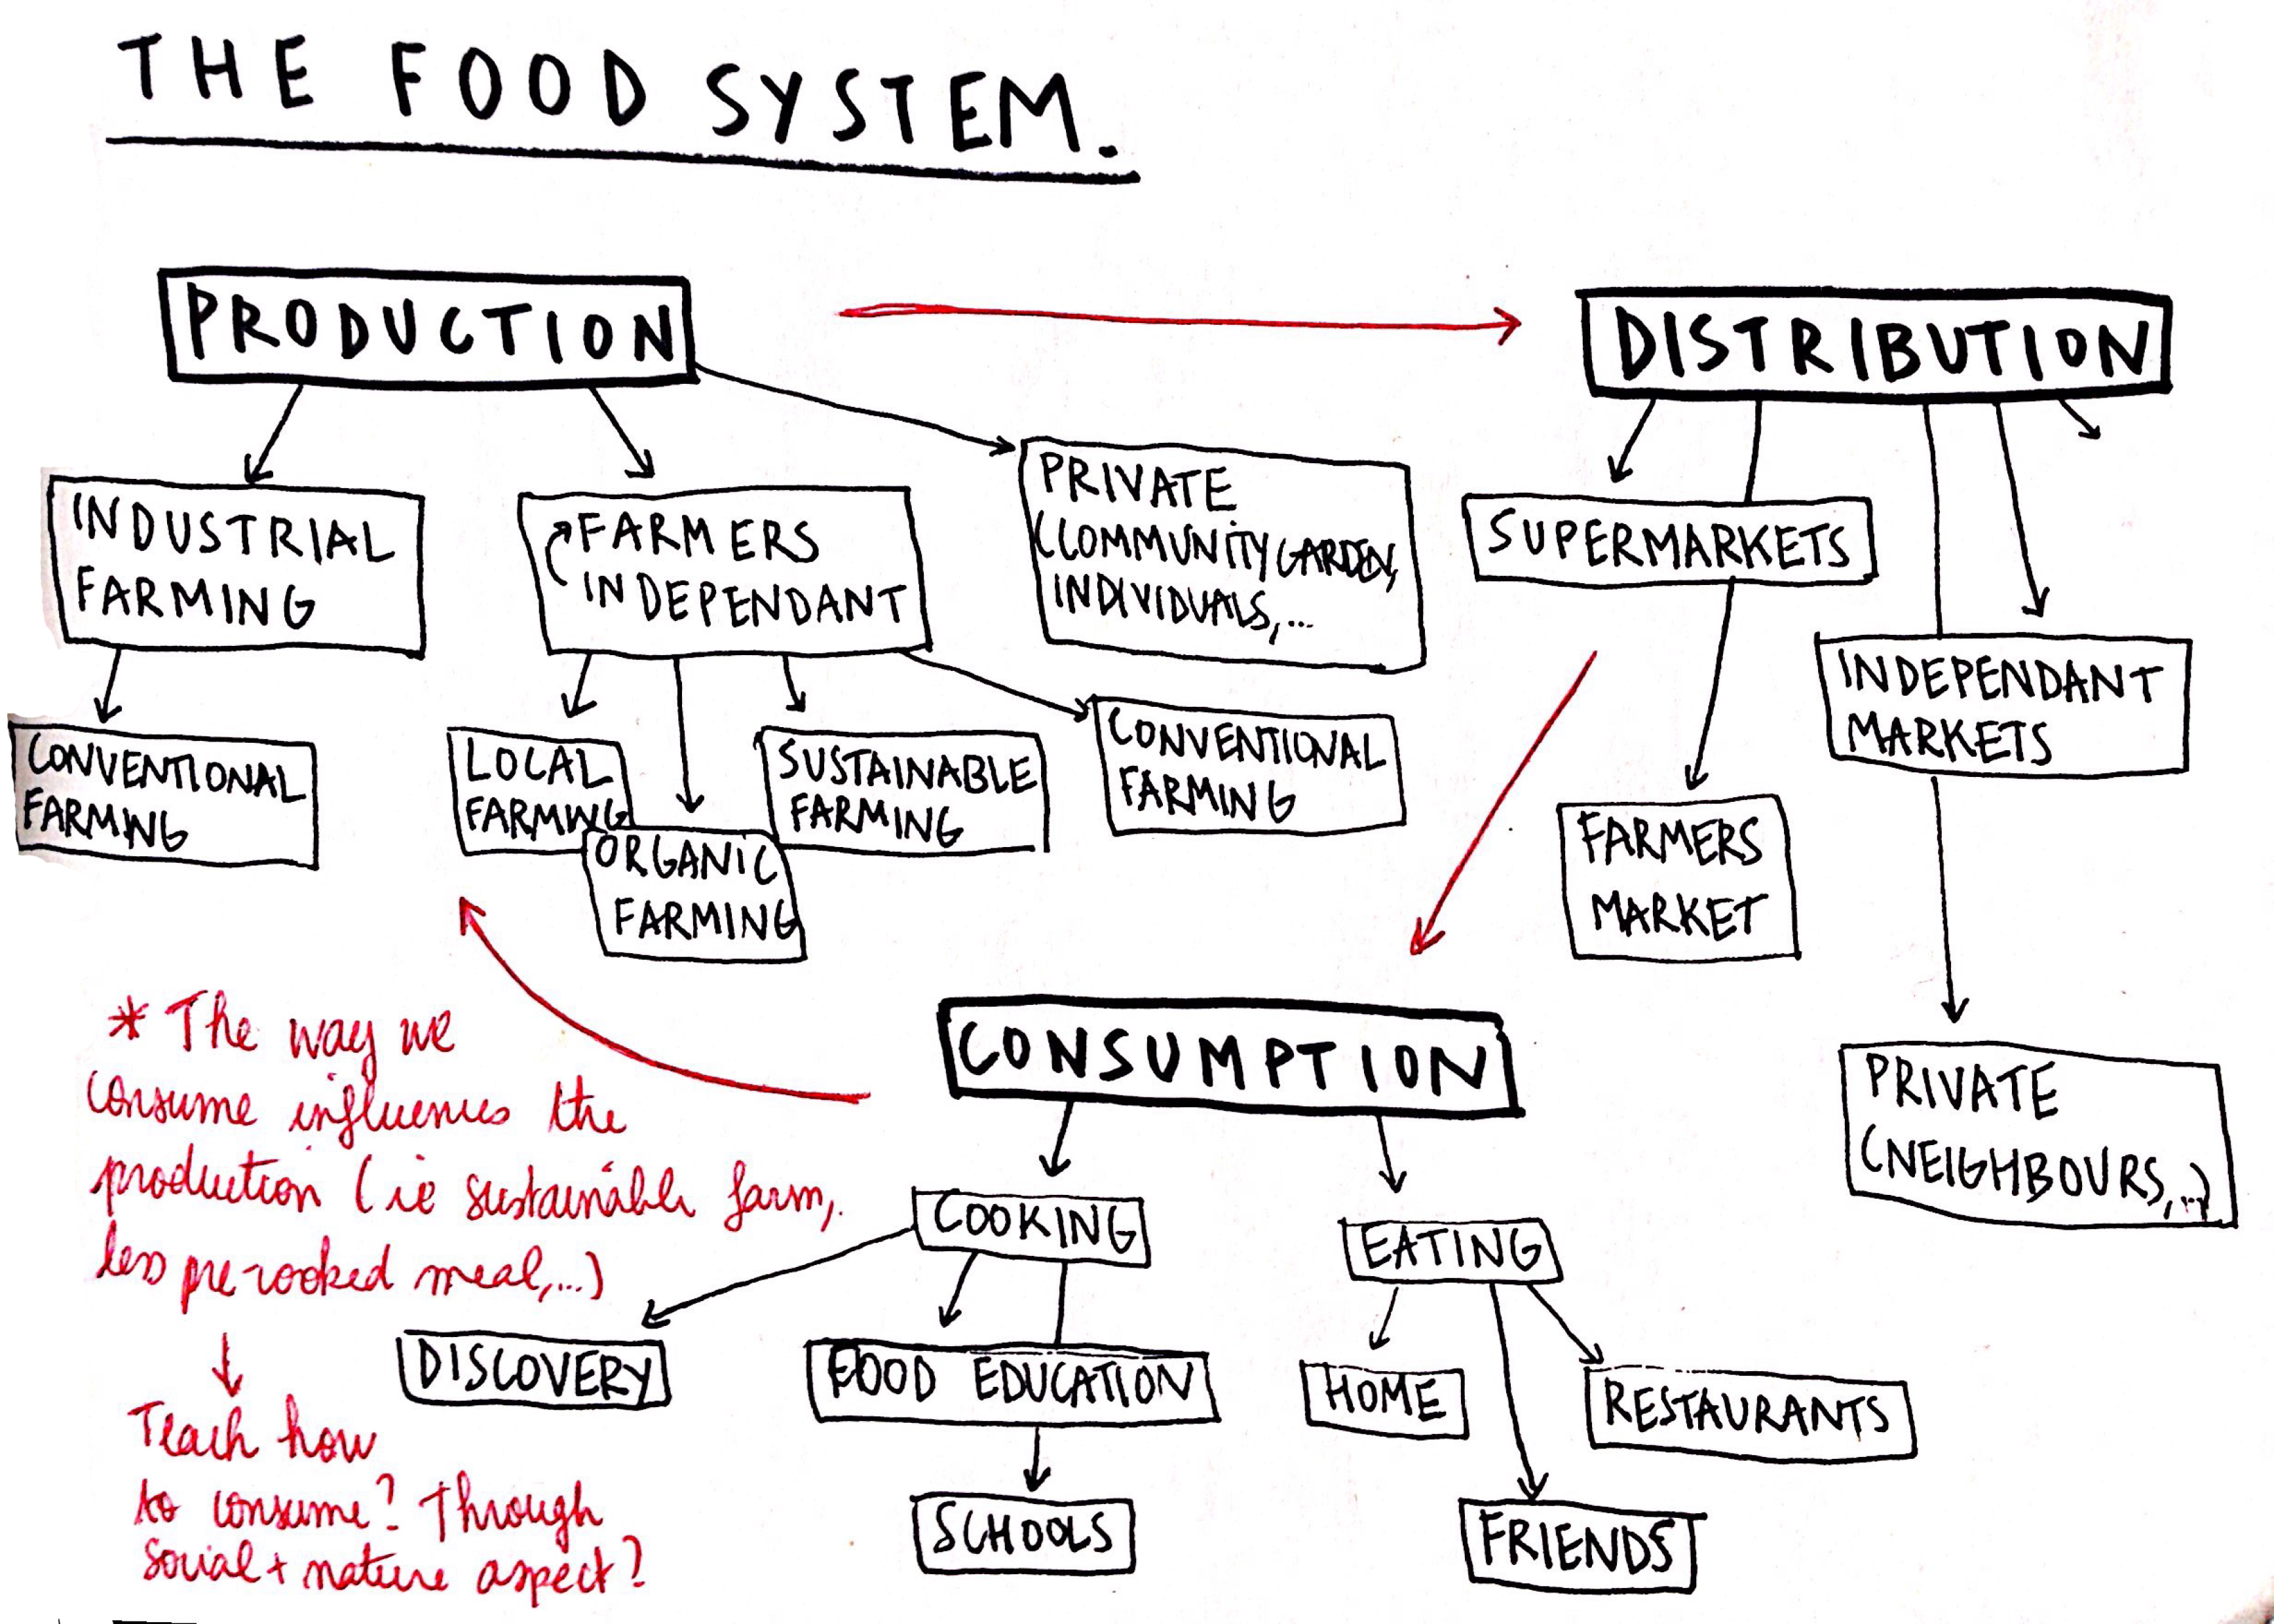 THE FOOD SYSTEM.
PRODUCTION
DISTRIBUTION
INDUSTRIAL
FARMING
FARMERS
INDEPENDANT
PRIVATE
(COMMUNITY GARDEN,
INDIVIDUALS,...
SUPERMARKETS
INDEPENDANT
MARKETS
CONVENTIONAL
FARMING
LOCAL
FARMING
ORGANIC
FARMING
SUSTAINABLE
FARMING
CONVENTIONAL
FARMING
FARMERS
MARKET
PRIVATE
(NEIGHBOURS,...)
CONSUMPTION
COOKING
EATING
DISCOVERY
FOOD EDUCATION
HOME
RESTAURANTS
SCHOOLS
FRIENDS
* The way we
consume influences the
production (ie sustainable farm,
less pre-cooked meal,...)
Teach how
to consume? Through
social + nature aspect?